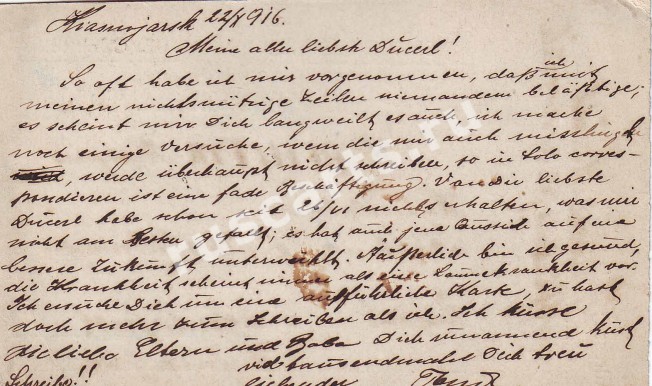 Krasnojarsk 22/X 916.
Meine aller liebste Ducerl!
So oft habe ich mir vorgenommen, daß ich mit
meinen nichtsnützige Zeilen niemandem belästige;
es scheint mir Dich langweilt es auch, ich mache
noch einige Versuche, wenn die mir auch
werde überhaupt nicht schreiben, so in Solo corres-
pondieren ist eine fade Beschäftigung. Von Dir liebste
Ducerl habe schon seit 26/VI nichts erhalten, was mir
nicht am Besten gefällt; es hat auch jene auf eine
bessere Zukunft. Äußerliche bin ich gesund,
die Krankheit scheint immer als eine vor.
Ich ersuche Dich um eine ausführliche Karte, Du hast
doch mehr zum Schreiben als ich. Ich küsse
die liebe Eltern und Dich umarmend küsst
vieltausendmal Dich treu
Schreibe!! liebender